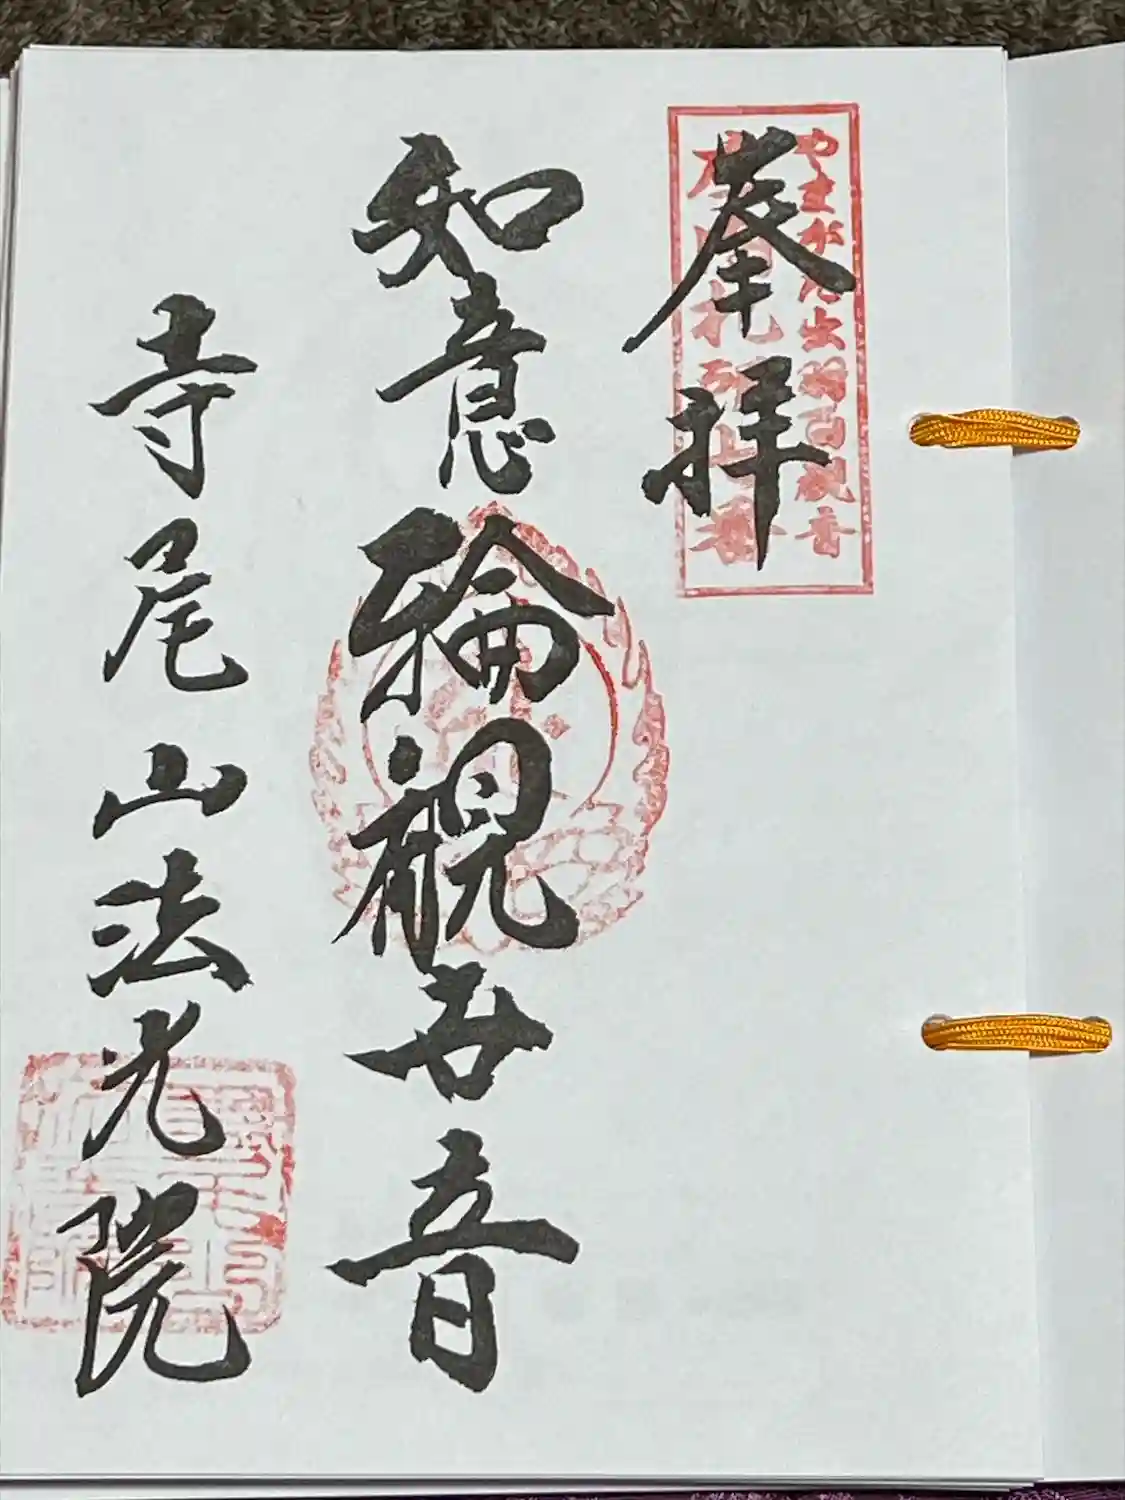 奉拝
やまがた出羽百観音
如意輪観世音
寺尾山法光院